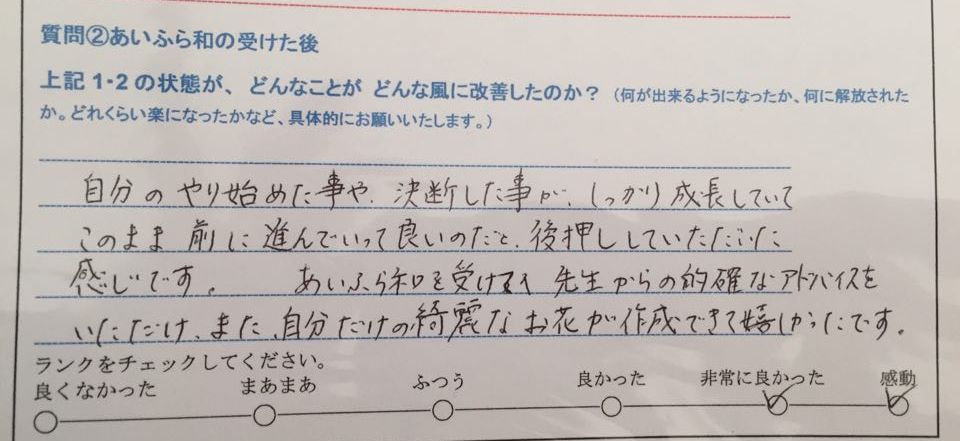 質問②あいふら和の受けた後
上記 1・2 の状態が、どんなことが どんな風に改善したのか？（何が出来るようになったか、何に解放された
か。どれくらい楽になったかなど、具体的にお願いいたします。）
自分の やり始めた事や、決断した事が、しっかり成長していて
このまま 前に 進んでいって良いのだと、後押ししていただいた
感じです。 あいふら和を受けると 先生からの的確なアドバイスを
いただけ、また、自分だけの綺麗な お花が作成できて嬉しかったです。
ランクをチェックしてください。
良くなかった まあまあ ふつう 良かった 非常に良かった 感動